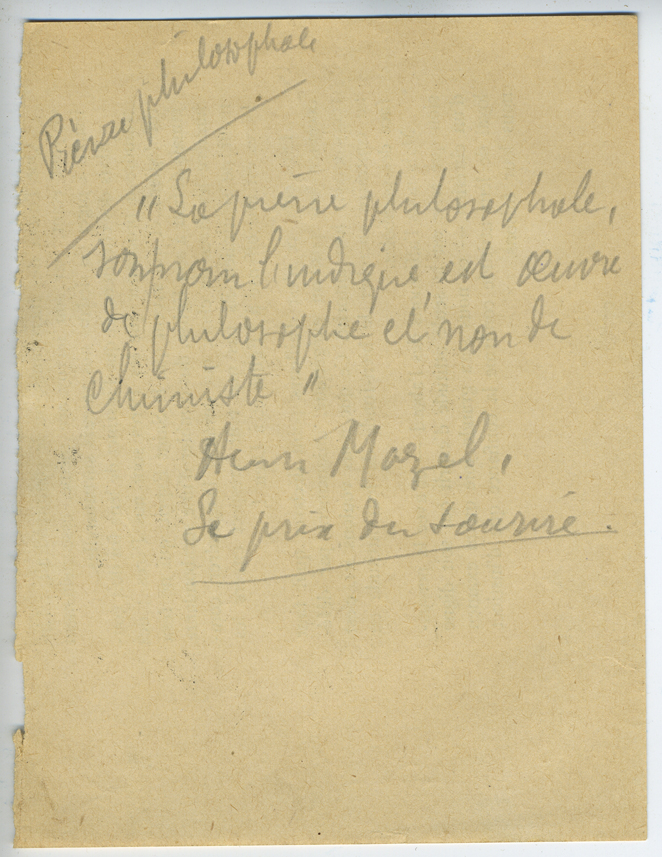 Pierre philosophale
"La pierre philosophale,
son nom l'indique, est œuvre
de philosophe et non de
chimiste"
Henri Mazel,
Le prix du sourire.